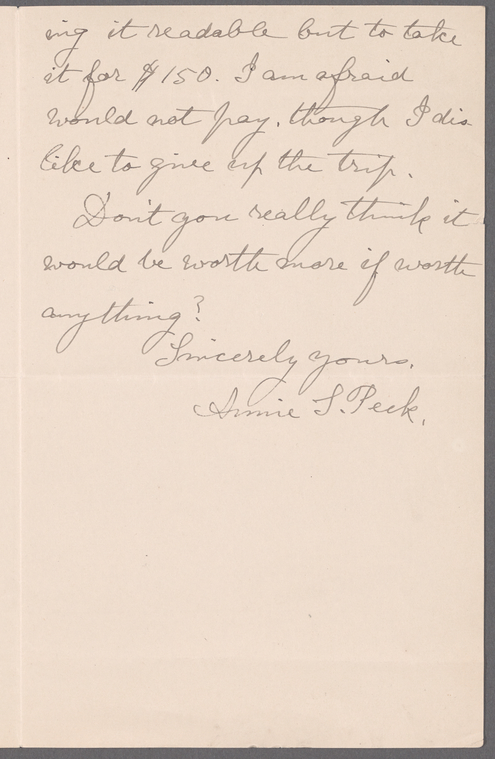 ing it readable but to take
it for $150. I am afraid
would not pay, though I dis
like to give up the trip.
Don't you really think it
would be worth more if worth
anything?
Sincerely yours,
Annie S. Peck.